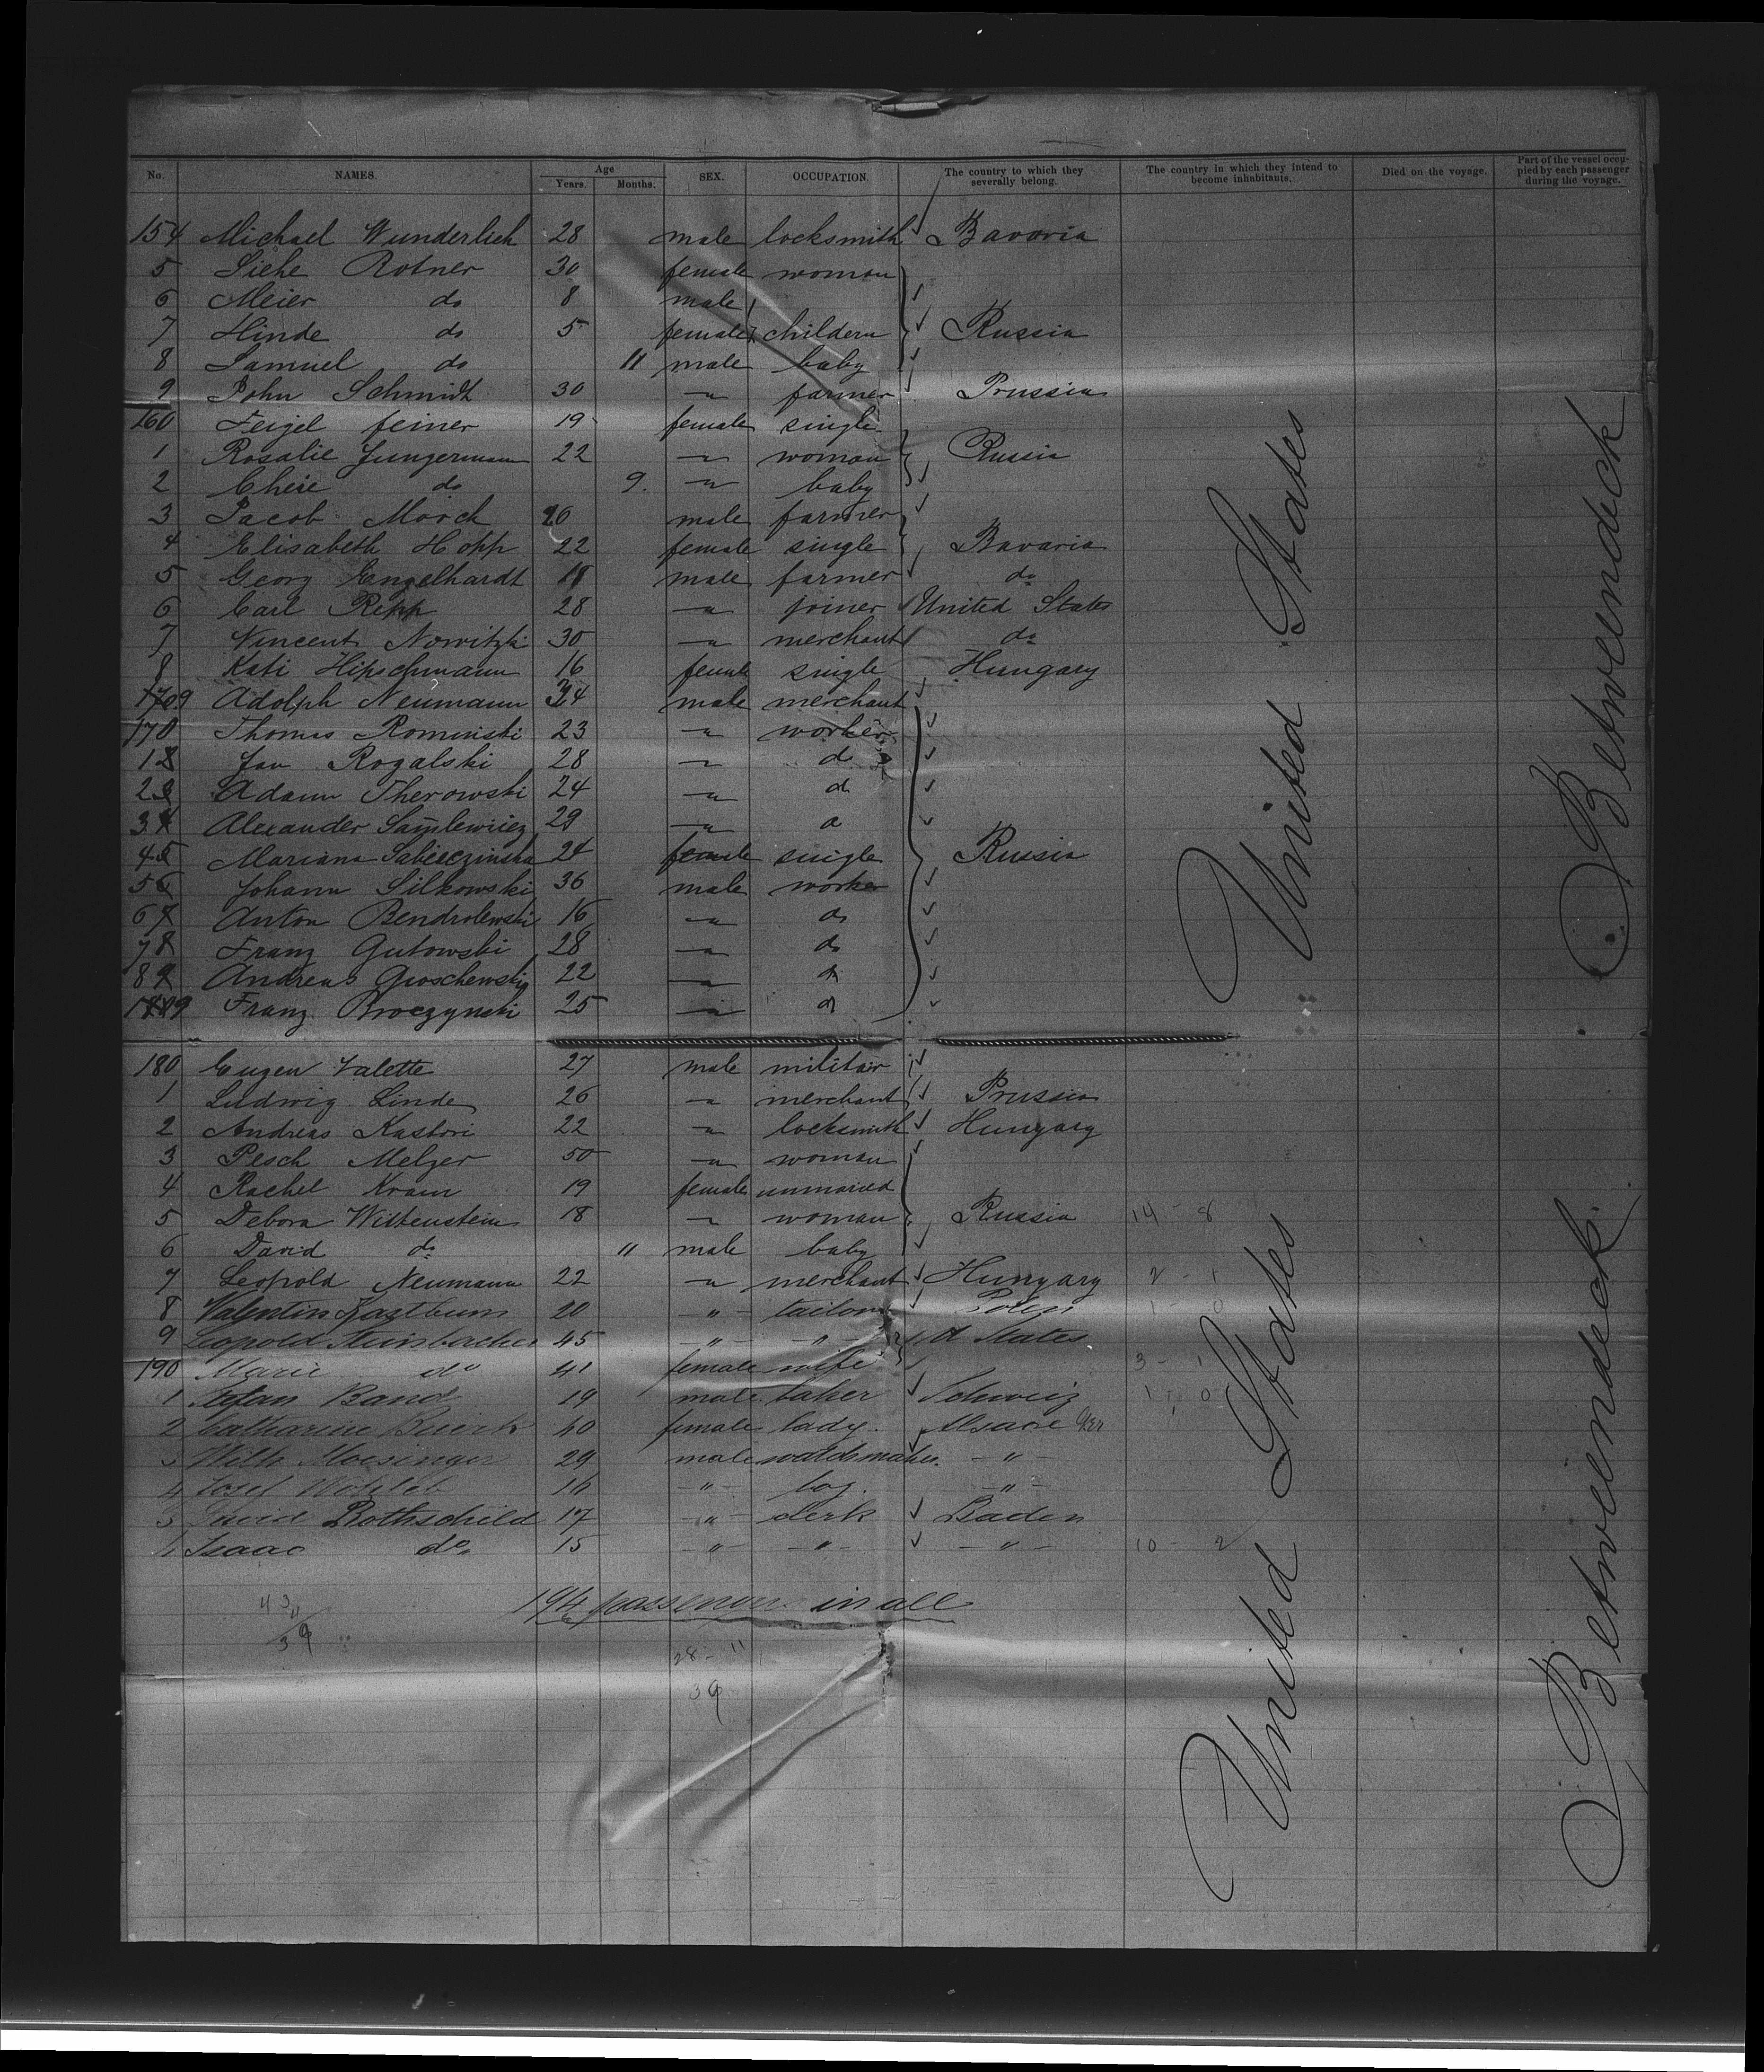 No. NAMES. Age Years. Months. SEX. OCCUPATION. The country to which they severally belong. The country in which they intend to become inhabitants. Died on the voyage. Part of the vessel occupied by each passenger during the voyage.
154 Michael Wunderlich 28 male locksmith Bavaria
5 Siehe Rotner 30 female woman
6 Meier do 8 male
7 Hinde do 5 female childern Russia
8 Samuel do 11 male baby
9 John Schmidt 30 " farmer Prussia
160 Feigel feiner 19 female single
1 Rosalie Jungermann 22 " woman Russia
2 Cheie do 9. " baby
3 Jacob Mörck 20 male farmer
4 Elisabeth Hopp 22 female single Bavaria
5 Georg Engelhardt 18 male farmer do
6 Carl Ripp 28 " joiner United States
7 Vincent Nowitzki 30 " merchant do
8 Kati Hipschmann 16 female single Hungary
9 Adolph Neumann 34 male merchant
170 Thomas Rominski 23 " worker
1 Jan Rogalski 28 " do
2 Adam Therowski 24 " do
3 Alexander 29 " do
4 Mariana 24 female single Russia
5 Johann Silkowski 36 male worker
6 Anton Bendrolewski 16 " do
7 Franz Gutowski 28 " do
8 Andreas Groschewski 22 " do
9 Franz Broczynski 25 " do
180 Eugen Valette 27 male militair
1 Ludwig Linde 26 " merchant Prussia
2 Andreas Kastori 22 " locksmith Hungary
3 Pesch Melzer 50 " woman
4 Rachel Kram 19 female unmaried
5 Debora Wittenstein 18 " woman Russia 14 - 8
6 David do 11 male baby
7 Leopold Neumann 22 " merchant Hungary 2 - 1
8 Valentin 20 " tailor Polen 1 - 0
9 Leopold Steinbacher 45 " " U States
190 Marie do 41 female wife 3 - 1
1 Stefan Band 19 male baker Schweiz 1 - 0
2 Catharine 40 female lady.
3 Wilh. Moesinger 29 male watchmaker. "
4 Josef 16 " boy. "
5 David Rothschild 17 " clerk Baden
Isaac do 15 " " " 10 - 2
United States
United States
Betweendeck
Betweendeck
passengers in all
28 - 11
39